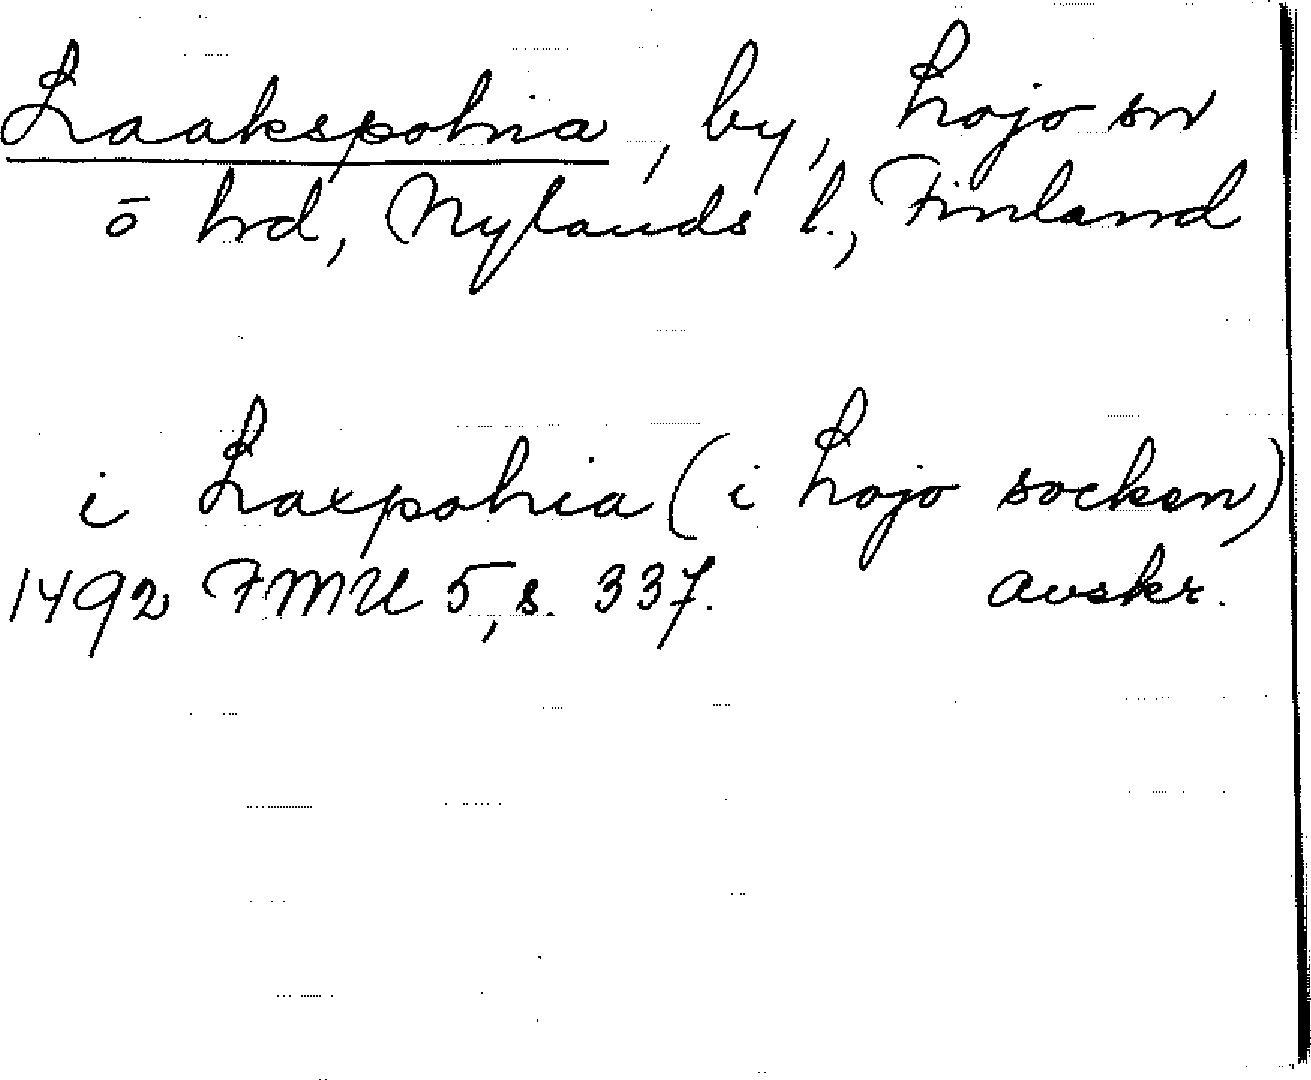 Laakspohia, by, Lojo sn
ō hrd, Nylands l., Finland
i Laxpohia (i Lojo socken)
1492 FMU 5, s. 337. avskr.